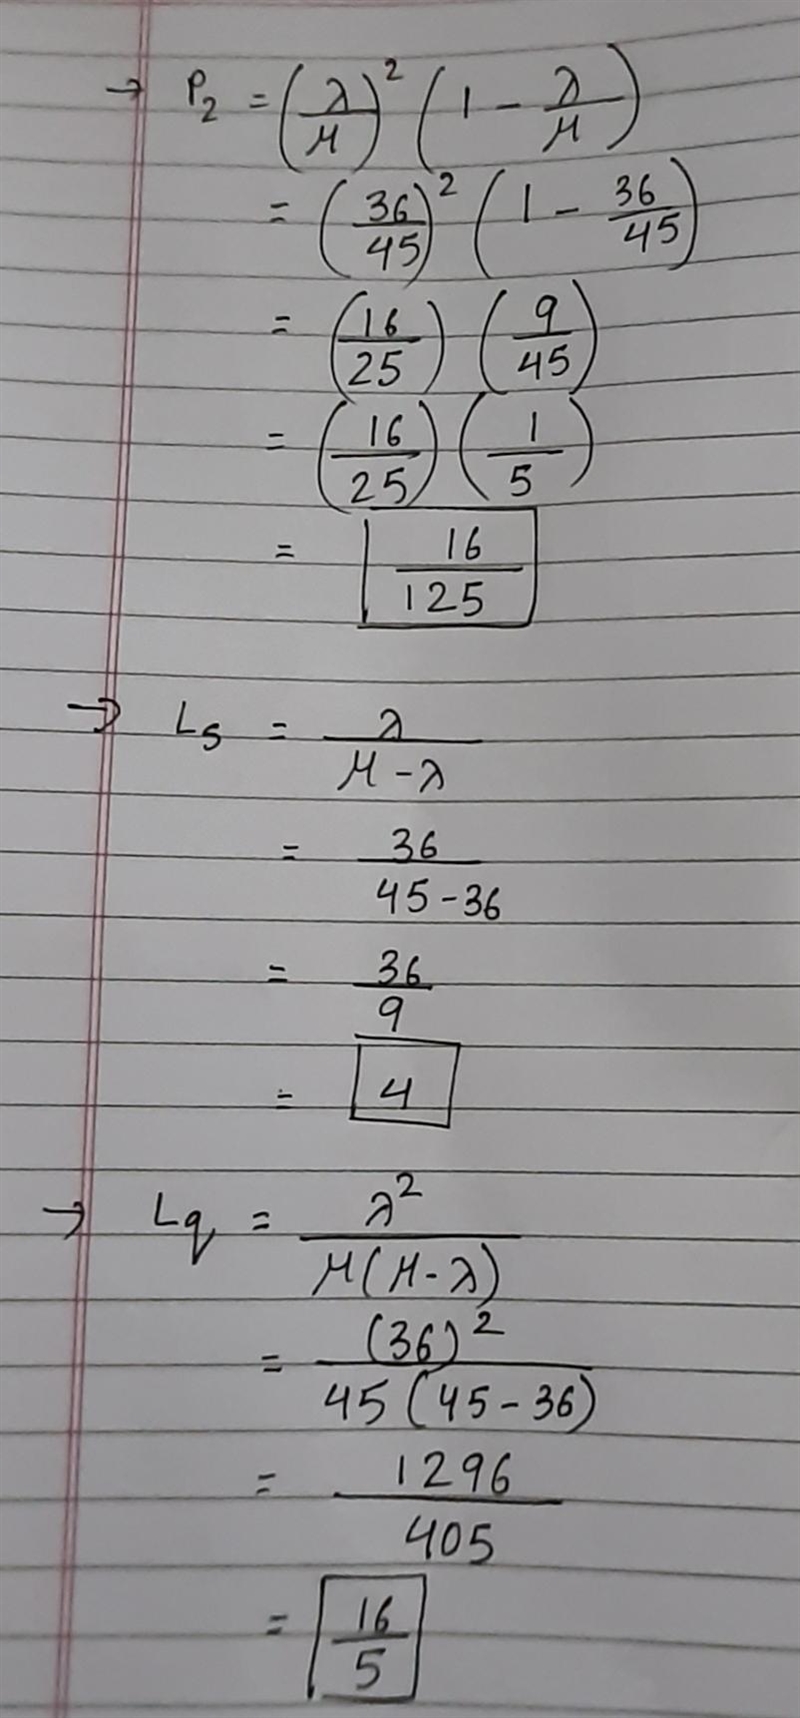 → P₂ = (λ/μ)² (1 - λ/μ)
= (36/45)² (1 - 36/45)
= (16/25) (9/45)
= (16/25) (1/5)
= 16/125
→ Ls = λ/(μ-λ)
= 36/(45-36)
= 36/9
= 4
→ Lq = λ²/(μ(μ-λ))
= (36)²/(45(45-36))
= 1296/405
= 16/5